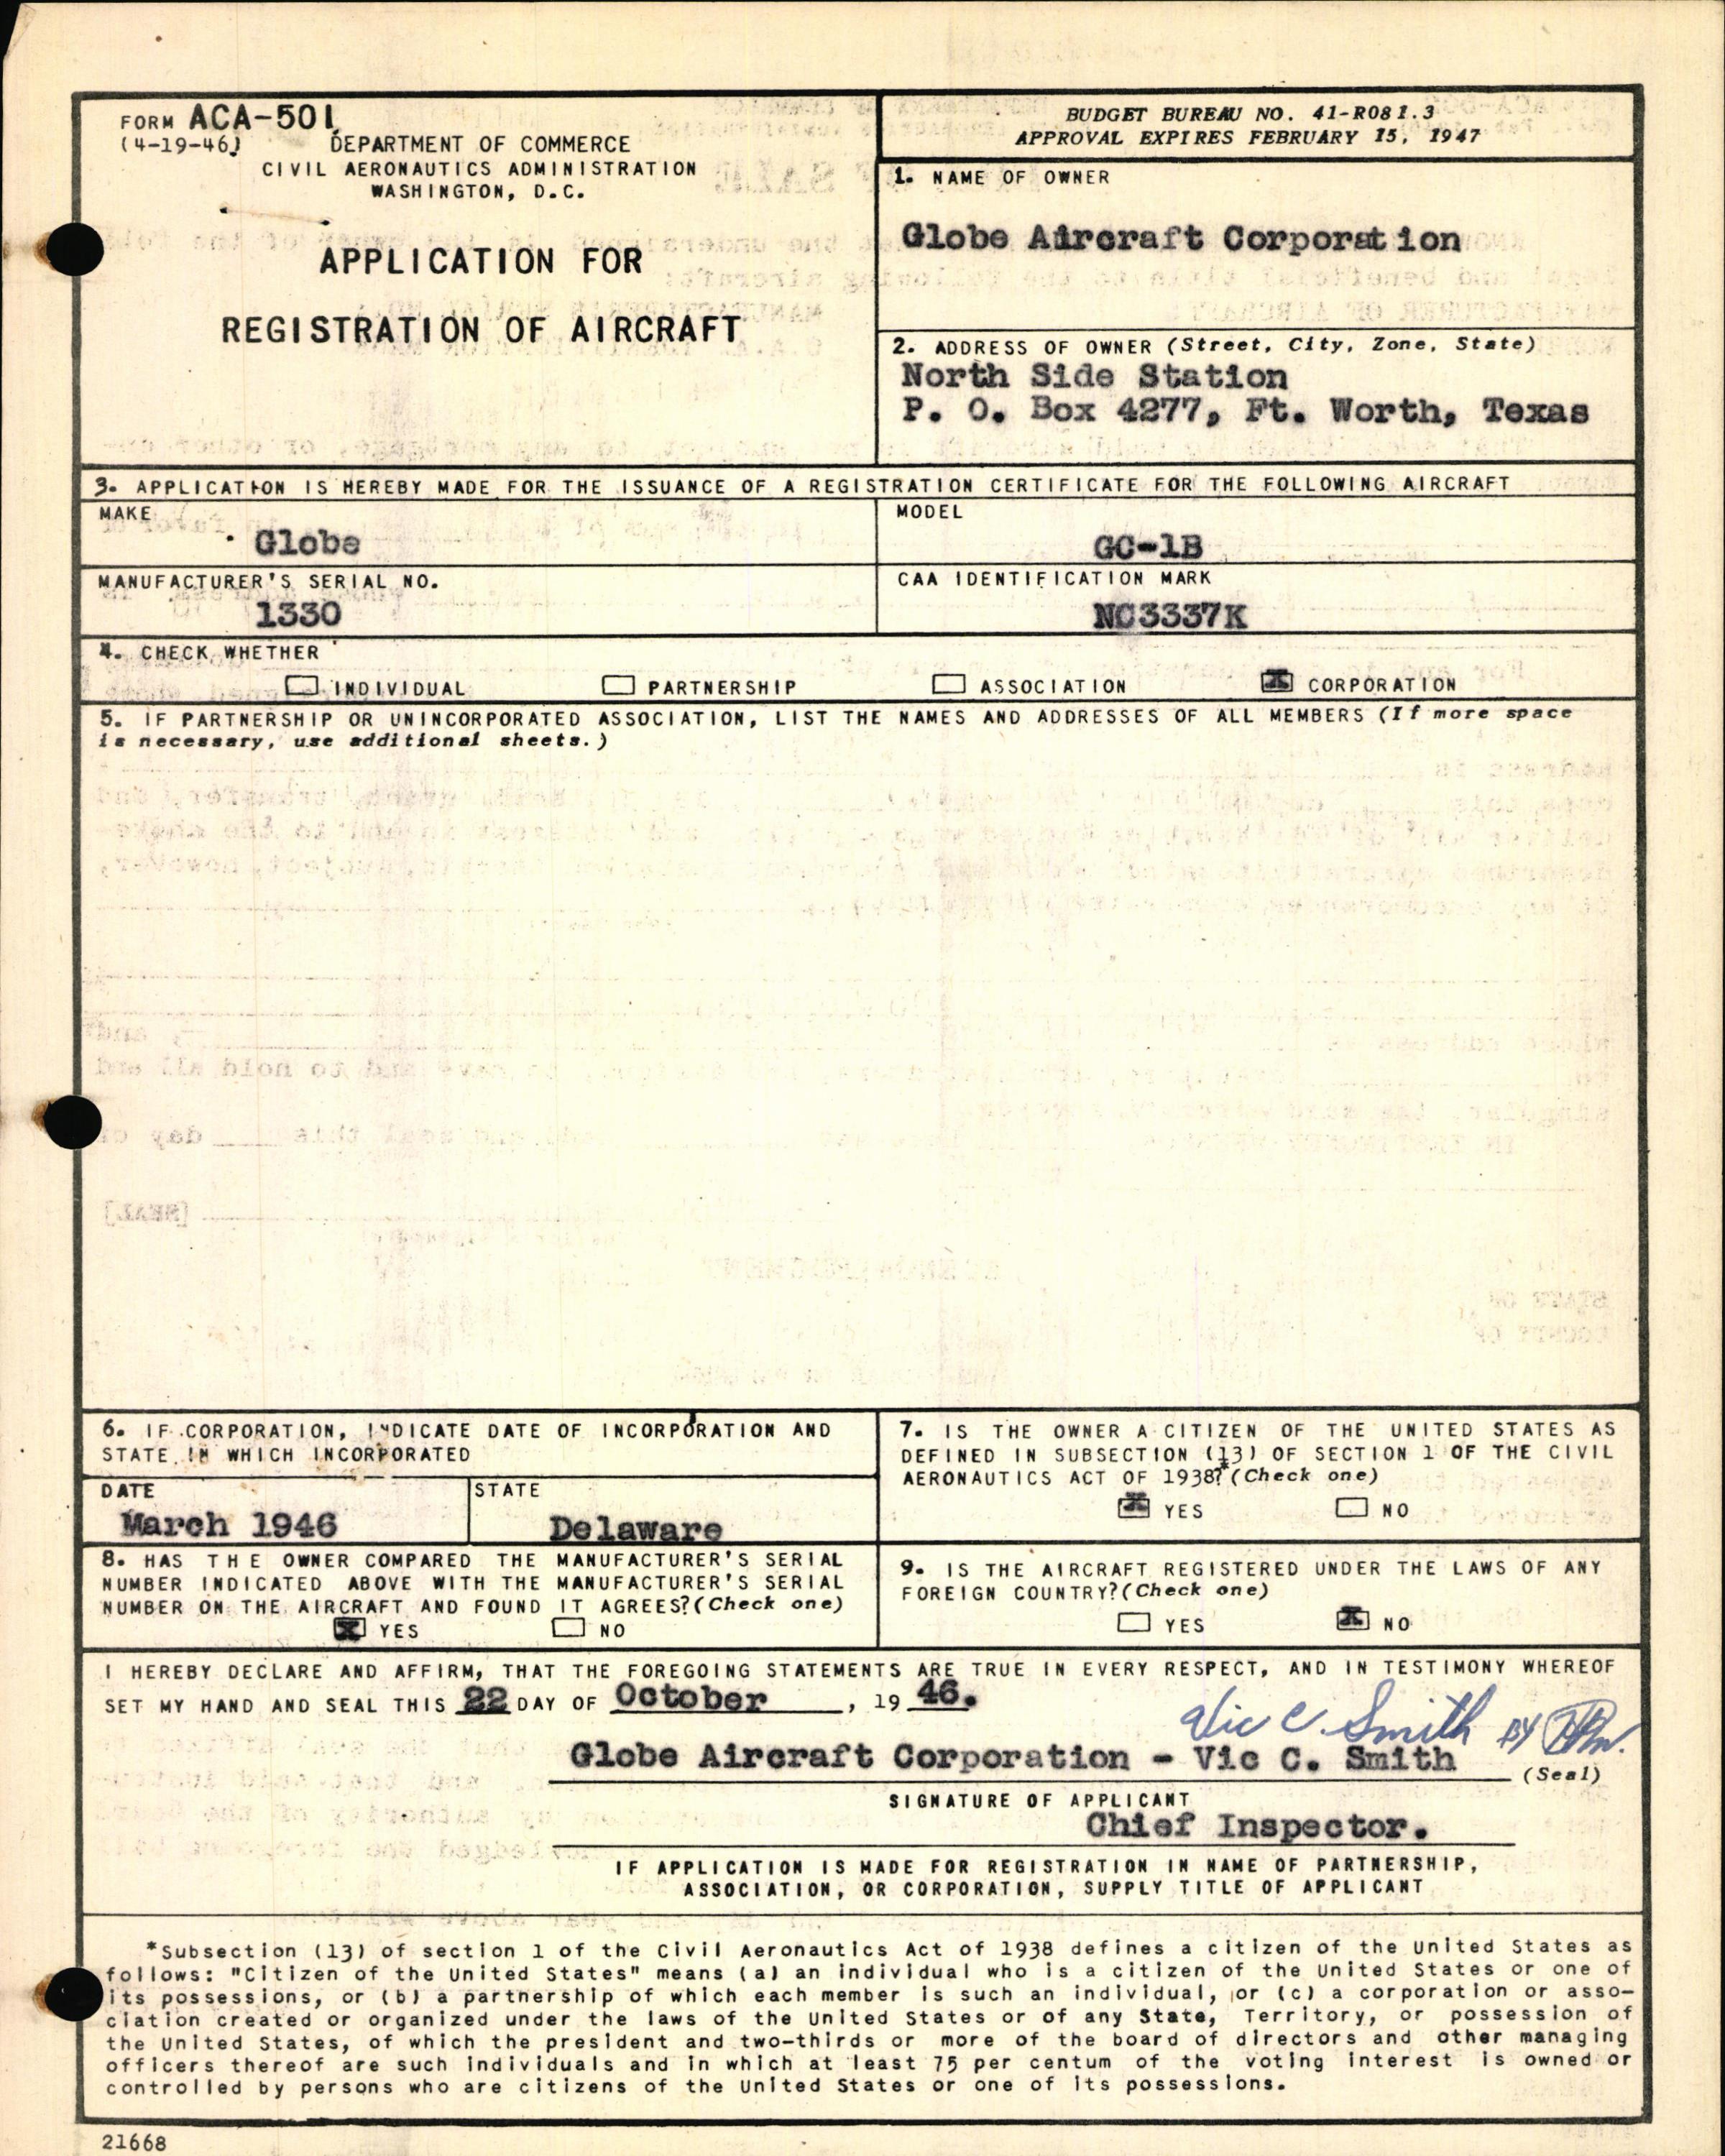 FORM ACA-501
(4-19-46)
DEPARTMENT OF COMMERCE
CIVIL AERONAUTICS ADMINISTRATION
WASHINGTON, D.C.
APPLICATION FOR
REGISTRATION OF AIRCRAFT
BUDGET BUREAU NO. 41-R081.3
APPROVAL EXPIRES FEBRUARY 15, 1947
1. NAME OF OWNER
Globe Aircraft Corporation
2. ADDRESS OF OWNER (Street, City, Zone, State)
North Side Station
P. O. Box 4277, Ft. Worth, Texas
3. APPLICATION IS HEREBY MADE FOR THE ISSUANCE OF A REGISTRATION CERTIFICATE FOR THE FOLLOWING AIRCRAFT
MAKE
Globe
MODEL
GC-1B
MANUFACTURER'S SERIAL NO.
1330
CAA IDENTIFICATION MARK
NC3337K
4. CHECK WHETHER
INDIVIDUAL PARTNERSHIP ASSOCIATION X CORPORATION
5. IF PARTNERSHIP OR UNINCORPORATED ASSOCIATION, LIST THE NAMES AND ADDRESSES OF ALL MEMBERS (If more space
is necessary, use additional sheets.)
6. IF CORPORATION, INDICATE DATE OF INCORPORATION AND
STATE IN WHICH INCORPORATED
DATE
March 1946
STATE
Delaware
7. IS THE OWNER A CITIZEN OF THE UNITED STATES AS
DEFINED IN SUBSECTION (13) OF SECTION 1 OF THE CIVIL
AERONAUTICS ACT OF 1938?* (Check one)
X YES NO
8. HAS THE OWNER COMPARED THE MANUFACTURER'S SERIAL
NUMBER INDICATED ABOVE WITH THE MANUFACTURER'S SERIAL
NUMBER ON THE AIRCRAFT AND FOUND IT AGREES? (Check one)
X YES NO
9. IS THE AIRCRAFT REGISTERED UNDER THE LAWS OF ANY
FOREIGN COUNTRY? (Check one)
YES X NO
I HEREBY DECLARE AND AFFIRM, THAT THE FOREGOING STATEMENTS ARE TRUE IN EVERY RESPECT, AND IN TESTIMONY WHEREOF
SET MY HAND AND SEAL THIS 22 DAY OF October, 19 46.
Vic C. Smith BY
Globe Aircraft Corporation - Vic C. Smith
(Seal)
SIGNATURE OF APPLICANT
Chief Inspector.
IF APPLICATION IS MADE FOR REGISTRATION IN NAME OF PARTNERSHIP,
ASSOCIATION, OR CORPORATION, SUPPLY TITLE OF APPLICANT
*Subsection (13) of section 1 of the Civil Aeronautics Act of 1938 defines a citizen of the United States as
follows: "Citizen of the United States" means (a) an individual who is a citizen of the United States or one of
its possessions, or (b) a partnership of which each member is such an individual, or (c) a corporation or asso-
ciation created or organized under the laws of the United States or of any State, Territory, or possession of
the United States, of which the president and two-thirds or more of the board of directors and other managing
officers thereof are such individuals and in which at least 75 per centum of the voting interest is owned or
controlled by persons who are citizens of the United States or one of its possessions.
21668